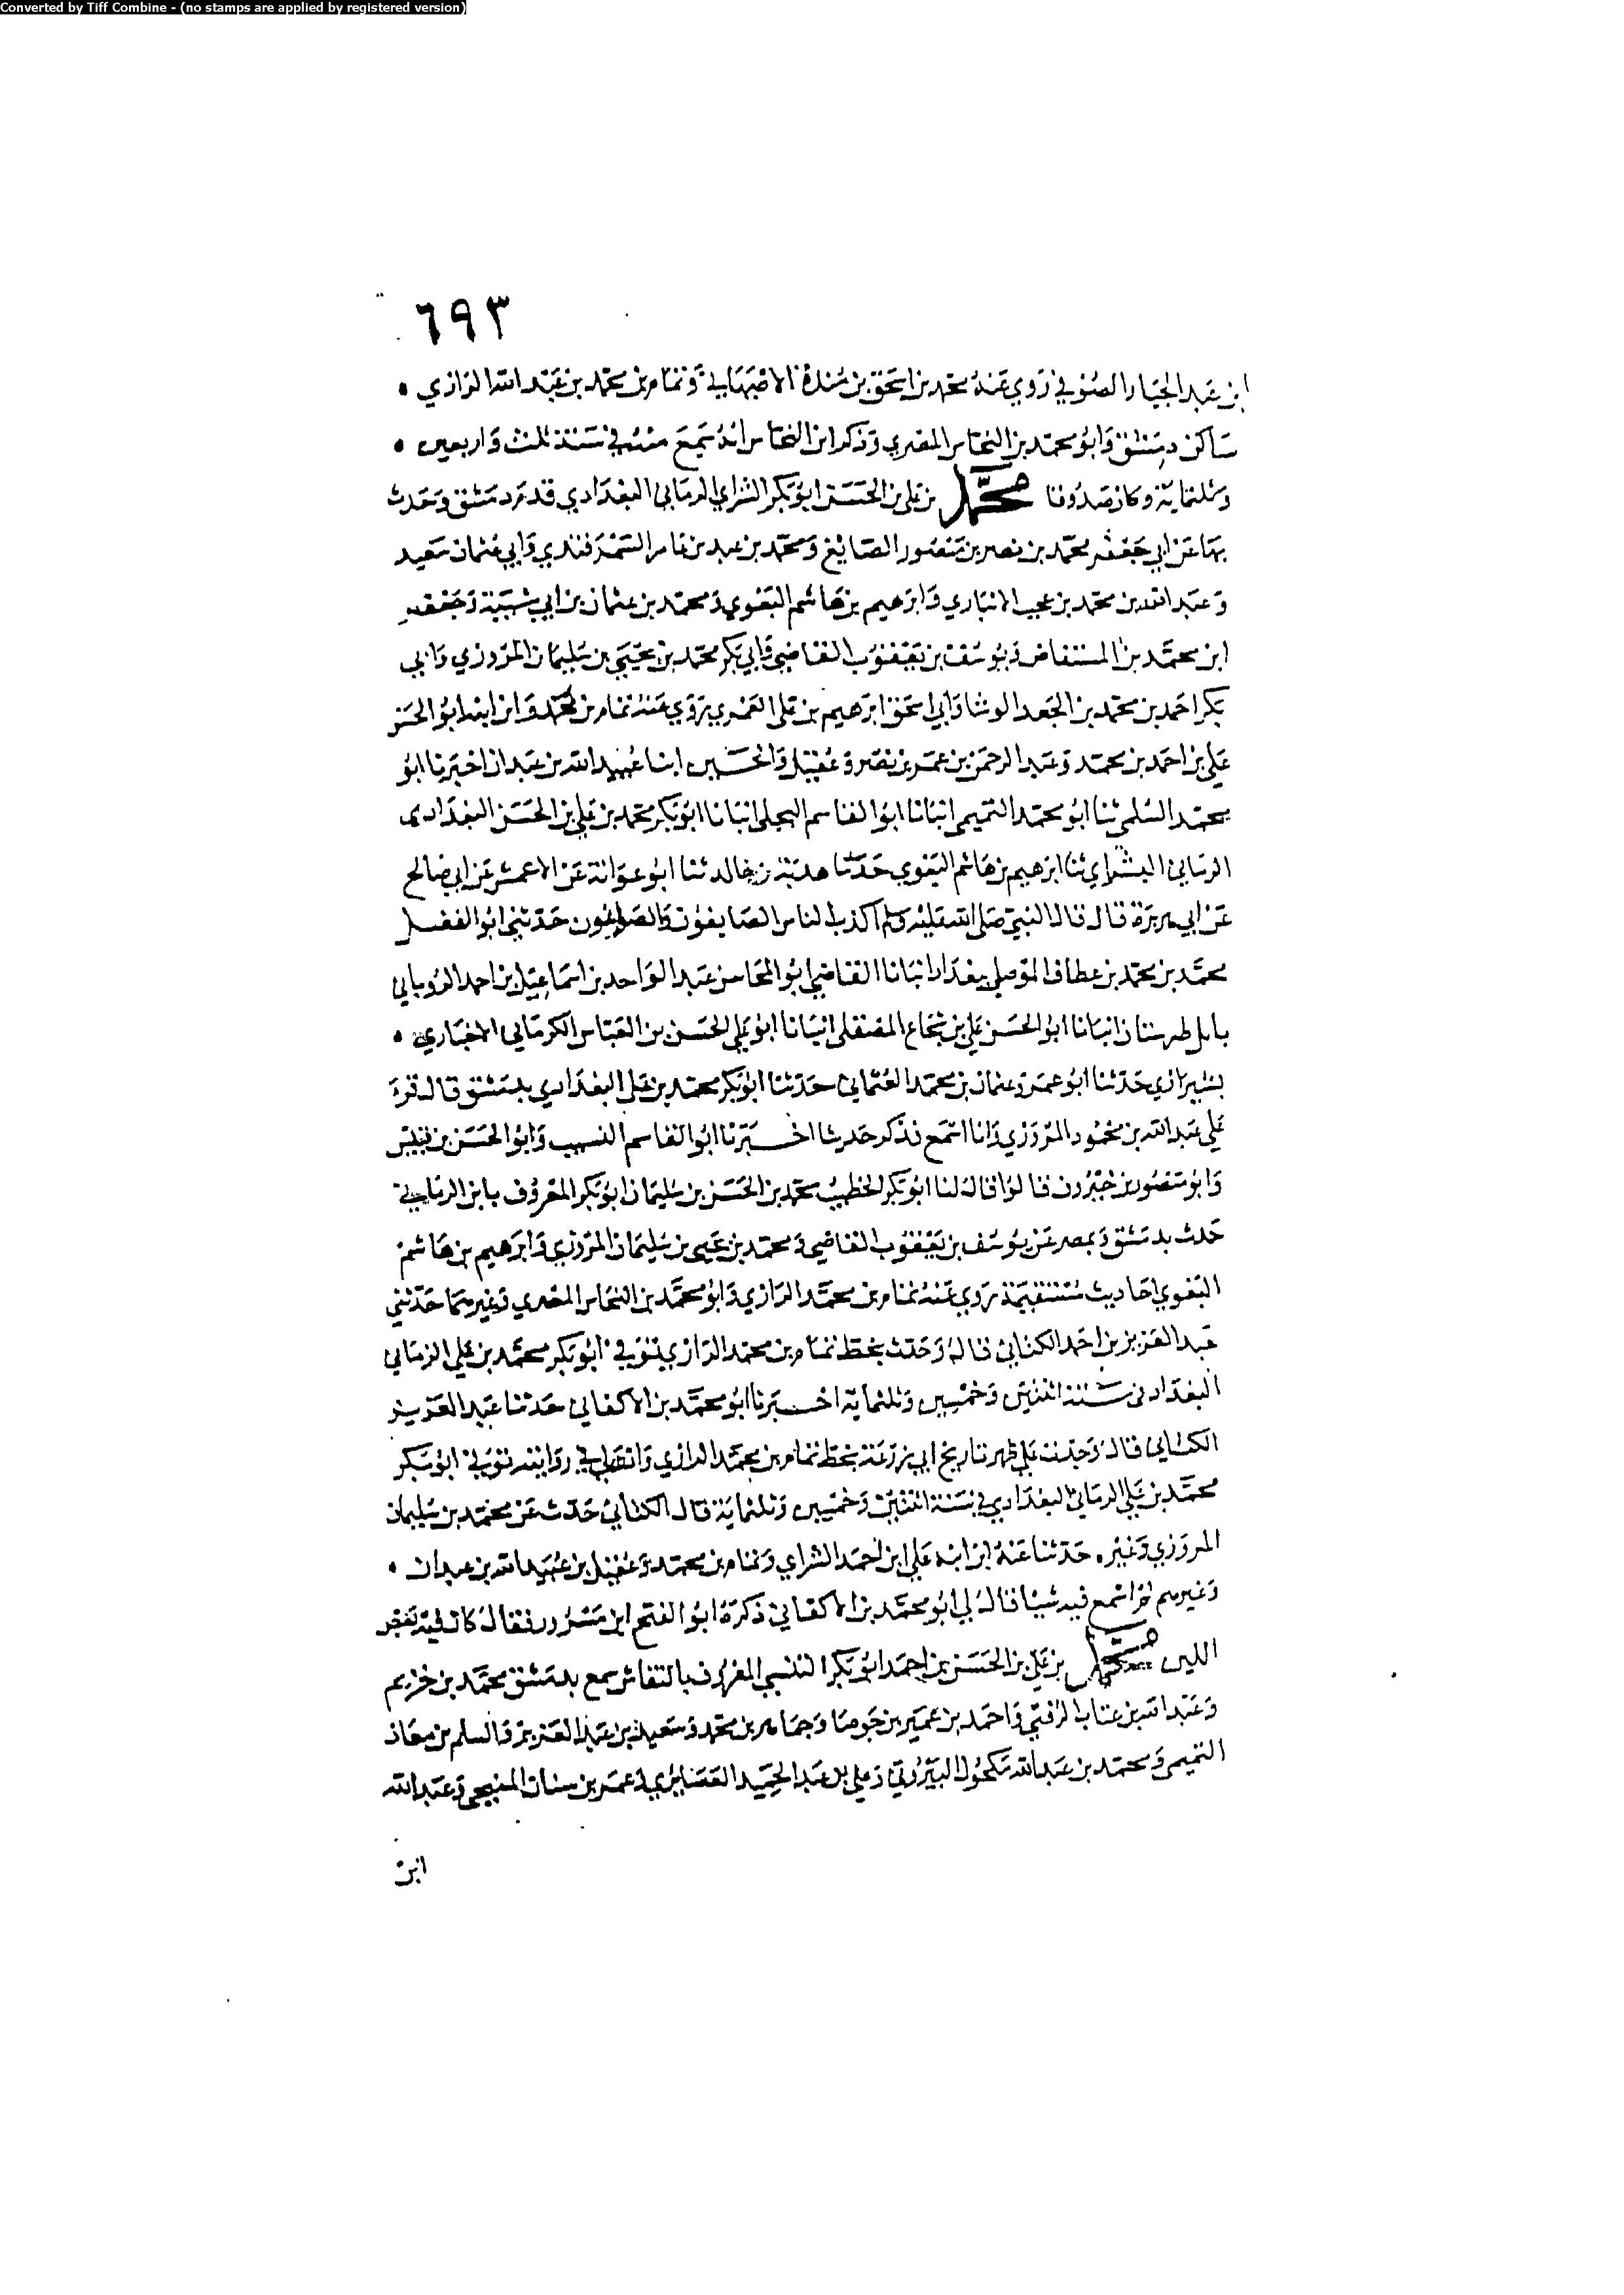 Converted by Tiff Combine - (no stamps are applied by registered version)
٦٩٣
ابن عبد الجبار الصوفي روي عنه محمد بن اسحق بن مندة الاصبهاني وتمام بن محمد بن عبد الله الرازي •
ساكن دمشق وابو محمد بن النحاس المصري وذكر ابن النحاس انه سمع منه في سنة ثلث واربعين •
وثلثماية وكان صدوقا محمد بن علي بن الحسن ابو بكر الشراي الرماني البغدادي قدم دمشق وحدث
بها عن ابي جعفر محمد بن نصر بن منصور الصايغ ومحمد بن عبد بن عامر السمرقندي وابي عثمان سعيد
وعبد الله بن محمد بن عجب الانباري وابرهيم بن هاشم البغوي ومحمد بن عثمان بن ابي شيبة وجعفر
ابن محمد بن المستفاض ويوسف بن يعقوب القاضي وابي بكر محمد بن يحيي بن سليمان المروزي وابي
بكر احمد بن محمد بن الجعد الوشا وابي اسحق ابرهيم بن علي العمري روي عنه تمام بن محمد وابن ابنه ابو الحسن
علي بن احمد بن محمد وعبد الرحمن بن عمر بن نصر وعقيل والحسين ابنا عبيد الله بن عبدان اخبرنا ابو
محمد السلمي ثنا ابو محمد التميمي انبانا ابو القاسم البجلي انبانا ابو بكر محمد بن علي بن الحسن البغدادي
الرماني الشراي ثنا ابرهيم بن هاشم البغوي حدثنا هدبة بن خالد ثنا ابو عوانة عن الاعمش عن ابي صالح
عن ابي هريرة قال قال النبي صلى الله عليه وسلم اكذب الناس الصايغون والصواغون حدثني ابو الفضل
محمد بن محمد بن عطاف الموصلي ببغداد انبانا القاضي ابو المحاسن عبد الواحد بن اسماعيل بن احمد الروياني
بامل طبرستان انبانا ابو الحسن علي بن شجاع المصقلي انبانا ابو علي الحسن بن العباس الكرماني الاخباري •
بشيرازي حدثنا ابو عمرو عثمان بن محمد العثماني حدثنا ابو بكر محمد بن علي البغدادي بدمشق قال قرء
علي عبد الله بن محمود المروزي وانا اسمع فذكر حديثا اخبرنا ابو القاسم النسيب وابو الحسن بن قبيس
وابو منصور بن خيرون قالوا قال لنا ابو بكر الخطيب محمد بن الحسن بن سليمان ابو بكر المعروف بابن الرماني
حدث بدمشق وبمصر عن يوسف بن يعقوب القاضي ومحمد بن يحيى بن سليمان المروزي وابرهيم بن هاشم
البغوي احاديث مستقيمة روي عنه تمام بن محمد الرازي وابو محمد بن النحاس المصري وغيرهما حدثني
عبد العزيز بن احمد الكتاني قال وجدت بخط تمام بن محمد الرازي توفي ابو بكر محمد بن علي الرماني
البغدادي سنة اثنتين وخمسين وثلثماية اخبرنا ابو محمد بن الاكفاني حدثنا عبد العزيز
الكتاني قال وجدت علي ظهر تاريخ ابي زرعة بخط تمام بن محمد الرازي توفي ابو بكر
محمد بن علي الرماني البغدادي في سنة اثنتين وخمسين وثلثماية قال الكتاني حدث عن محمد بن سليمان
المروزي وغيره حدثنا عنه ابن ابنه علي ابن احمد الشراي وتمام بن محمد وعقيل بن عبيد الله بن عبدان •
وغيرهم لم اسمع فيه شيئا قال لي ابو محمد بن الاكفاني ذكره ابو الفتح ابن مسرور فقال كان فيه بعض
اللين محمد بن علي بن الحسن بن احمد ابو بكر التنيسي المعروف بالنقاش سمع بدمشق محمد بن خريم
وعبد الله بن عتاب الزفتي واحمد بن عمير بن جوصا وجماهر بن محمد وسعيد بن عبد العزيز والسلم بن معاذ
التميمي ومحمد بن عبد الله مكحول البيروتي وعلي بن عبد الحميد الغضايري وعمر بن سنان المنبجي وعبد الله
ابن